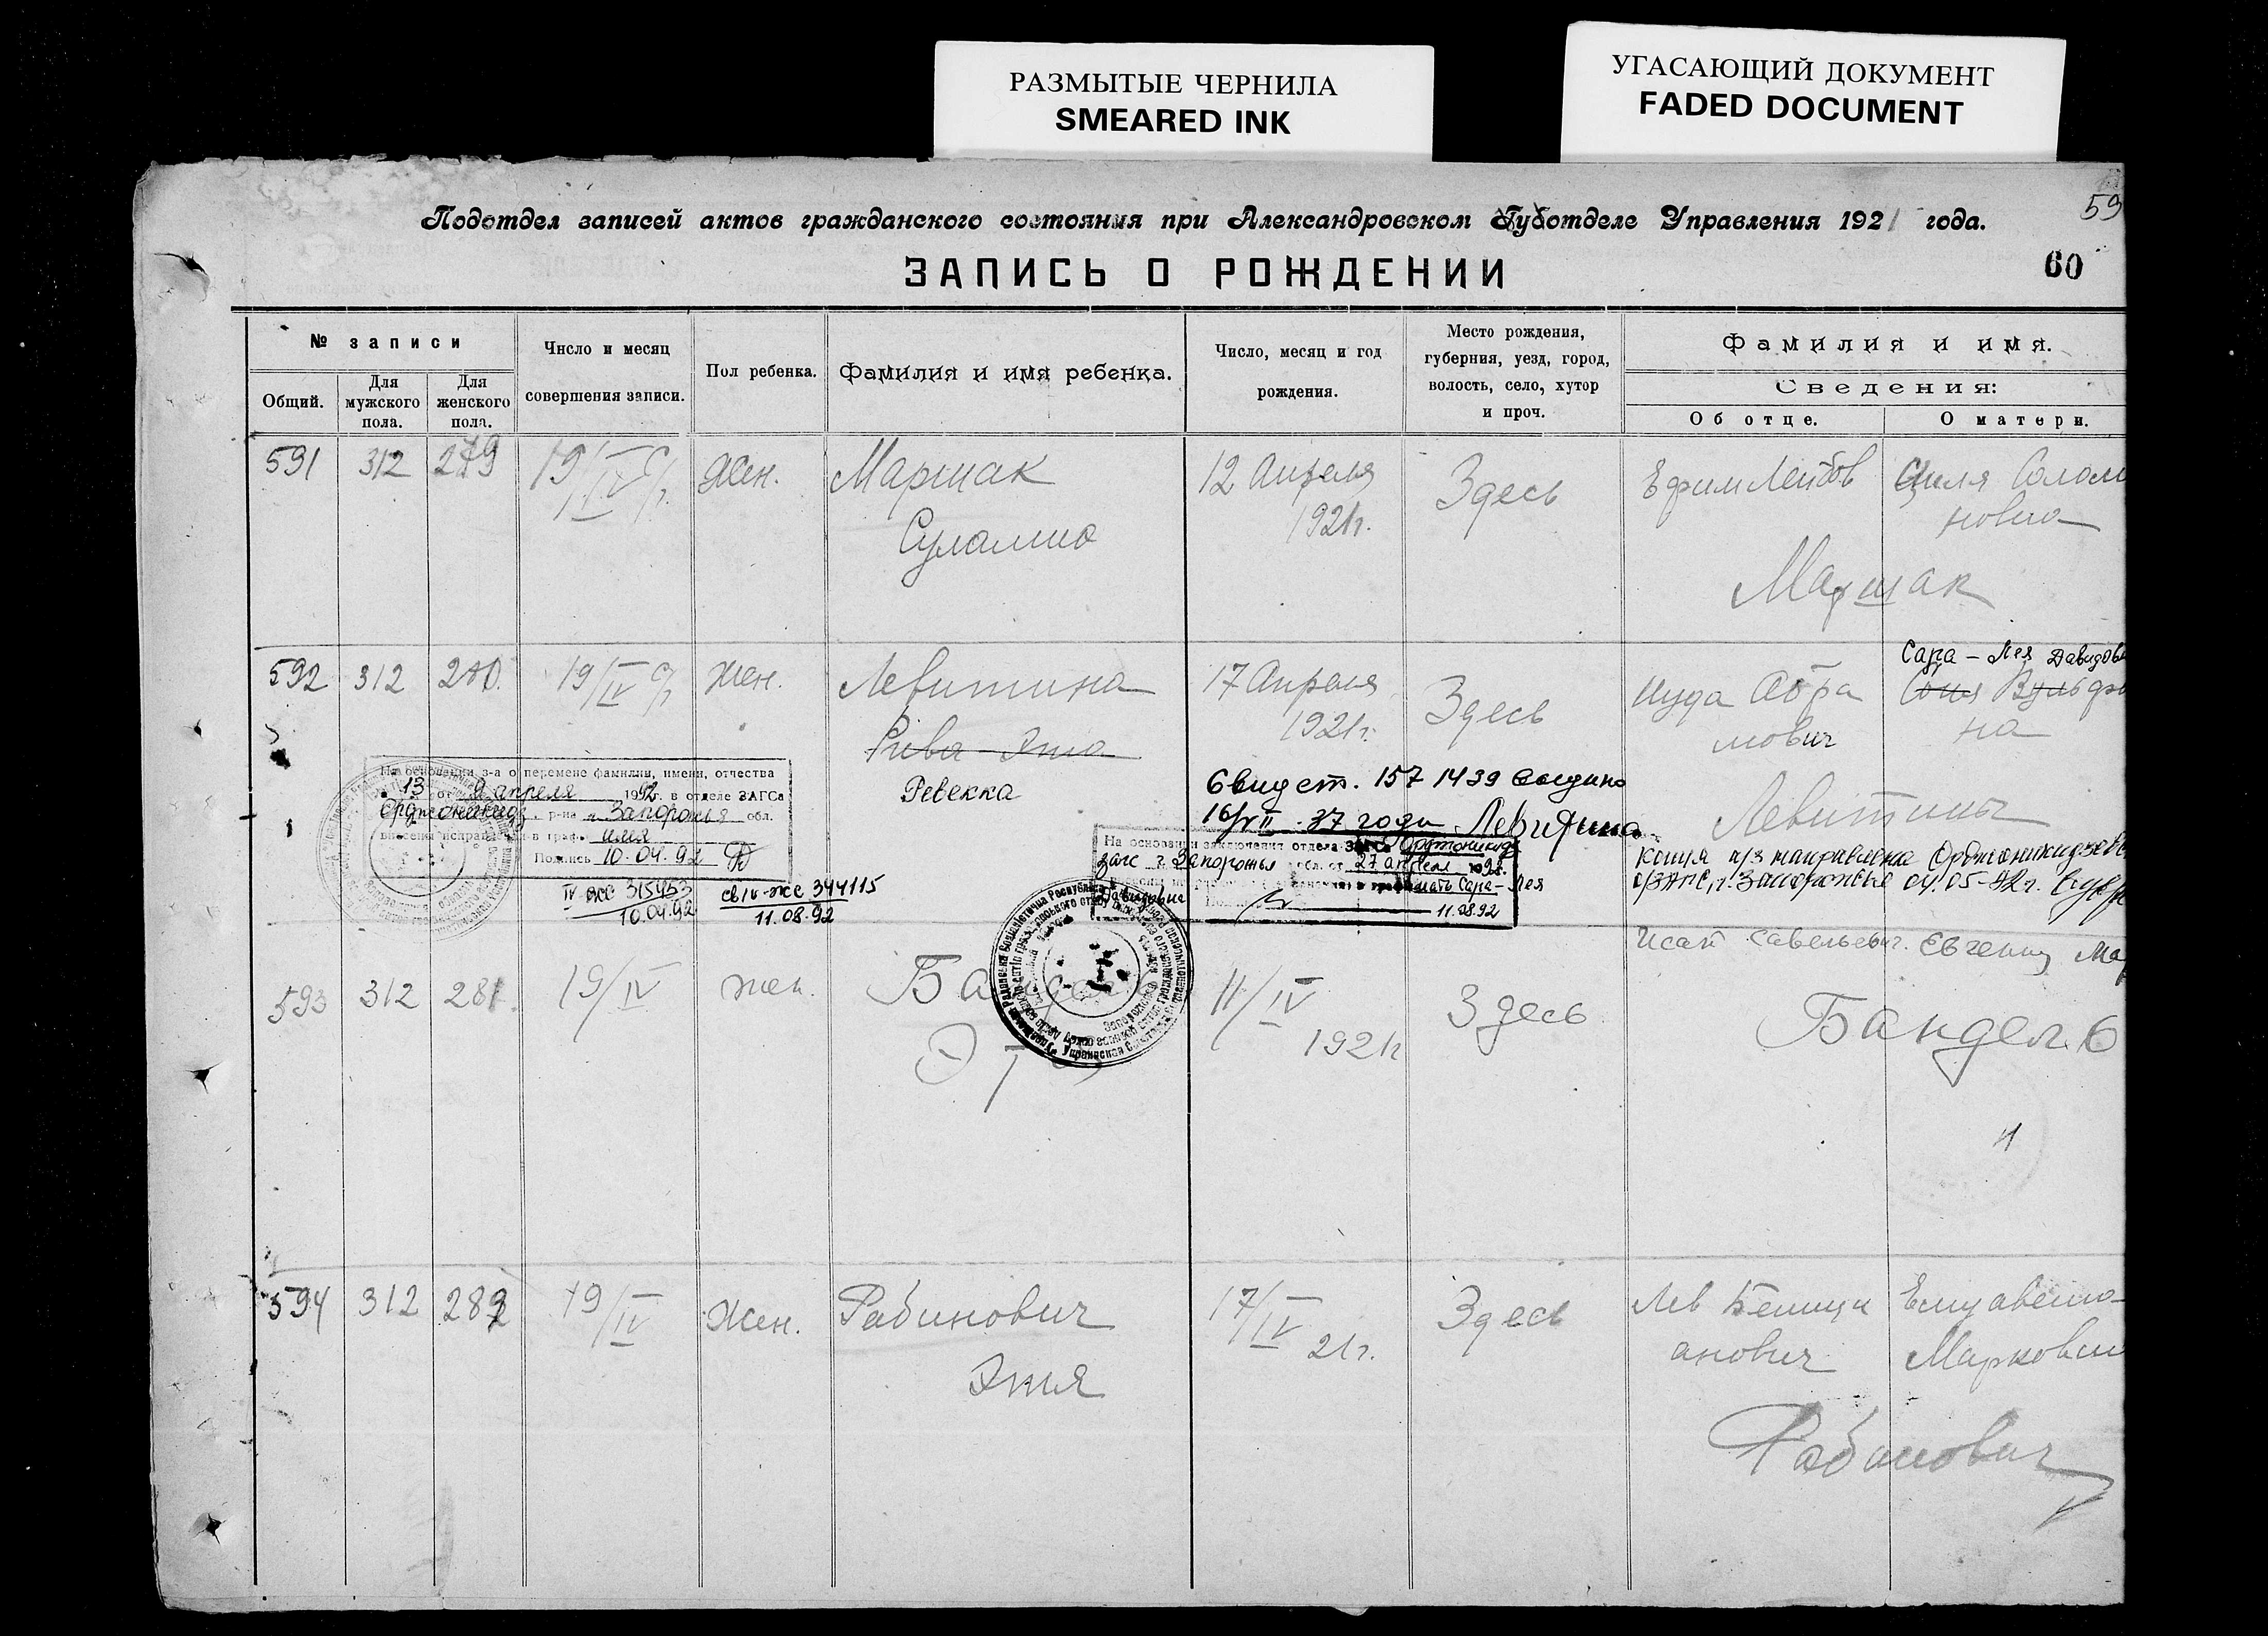 РАЗМЫТЫЕ ЧЕРНИЛА
SMEARED INK
УГАСАЮЩИЙ ДОКУМЕНТ
FADED DOCUMENT
59
Подотдел записей актов гражданского состояния при Александровском Губотделе Управления 1921 года.
ЗАПИСЬ О РОЖДЕНИИ
60
№ записи
Общий.
Для мужского пола.
Для женского пола.
Число и месяц
совершения записи.
Пол ребенка.
Фамилия и имя ребенка.
Число, месяц и год
рождения.
Место рождения,
губерния, уезд, город,
волость, село, хутор
и проч.
Фамилия и имя.
Сведения:
Об отце.
О матери.
591 312 279 19/IV жен. Маршак 12 Апреля Здесь Ефим Лейбов Циля Солом
1921г. новна
Суламио
Маршак
Сара - Лея Давидов
592 312 280. 19/IV жен. Левитина 17 Апреля Здесь Иуда Абра
1921г. мович на
Рива - Эта
Ревекка
Левитины
На основании з-а о перемене фамилии, имени, отчества
13 от 9 апреля 1992 г. в отделе ЗАГСа
р-на г. Запорожья обл.
внесены исправления в граф. имя
Подпись 10.04.92
IV-жс 315453
10.04.92
св IV-жс 344115
11.08.92
свид ст. 157 1439 выдано
16/VII 37 года Левитина
На основании заключения отдела ЗАГС
загс г. Запорожья обл. от 27 апреля 1992
мать Сара - Лея
Давидовна
11.08.92
копия а/з направлена
о/ЗАГС, г. Запорожья 04.05-92г.
Исаак Савельевич. Евгения Мар
593 312 281. 19/IV жен. 11/IV Здесь
1921г
Бандел
594 312 282 19/IV жен. Рабинович 17/IV Здесь Лев Бенци Елизавета
21г. анович Марковна
Этя
Рабинович